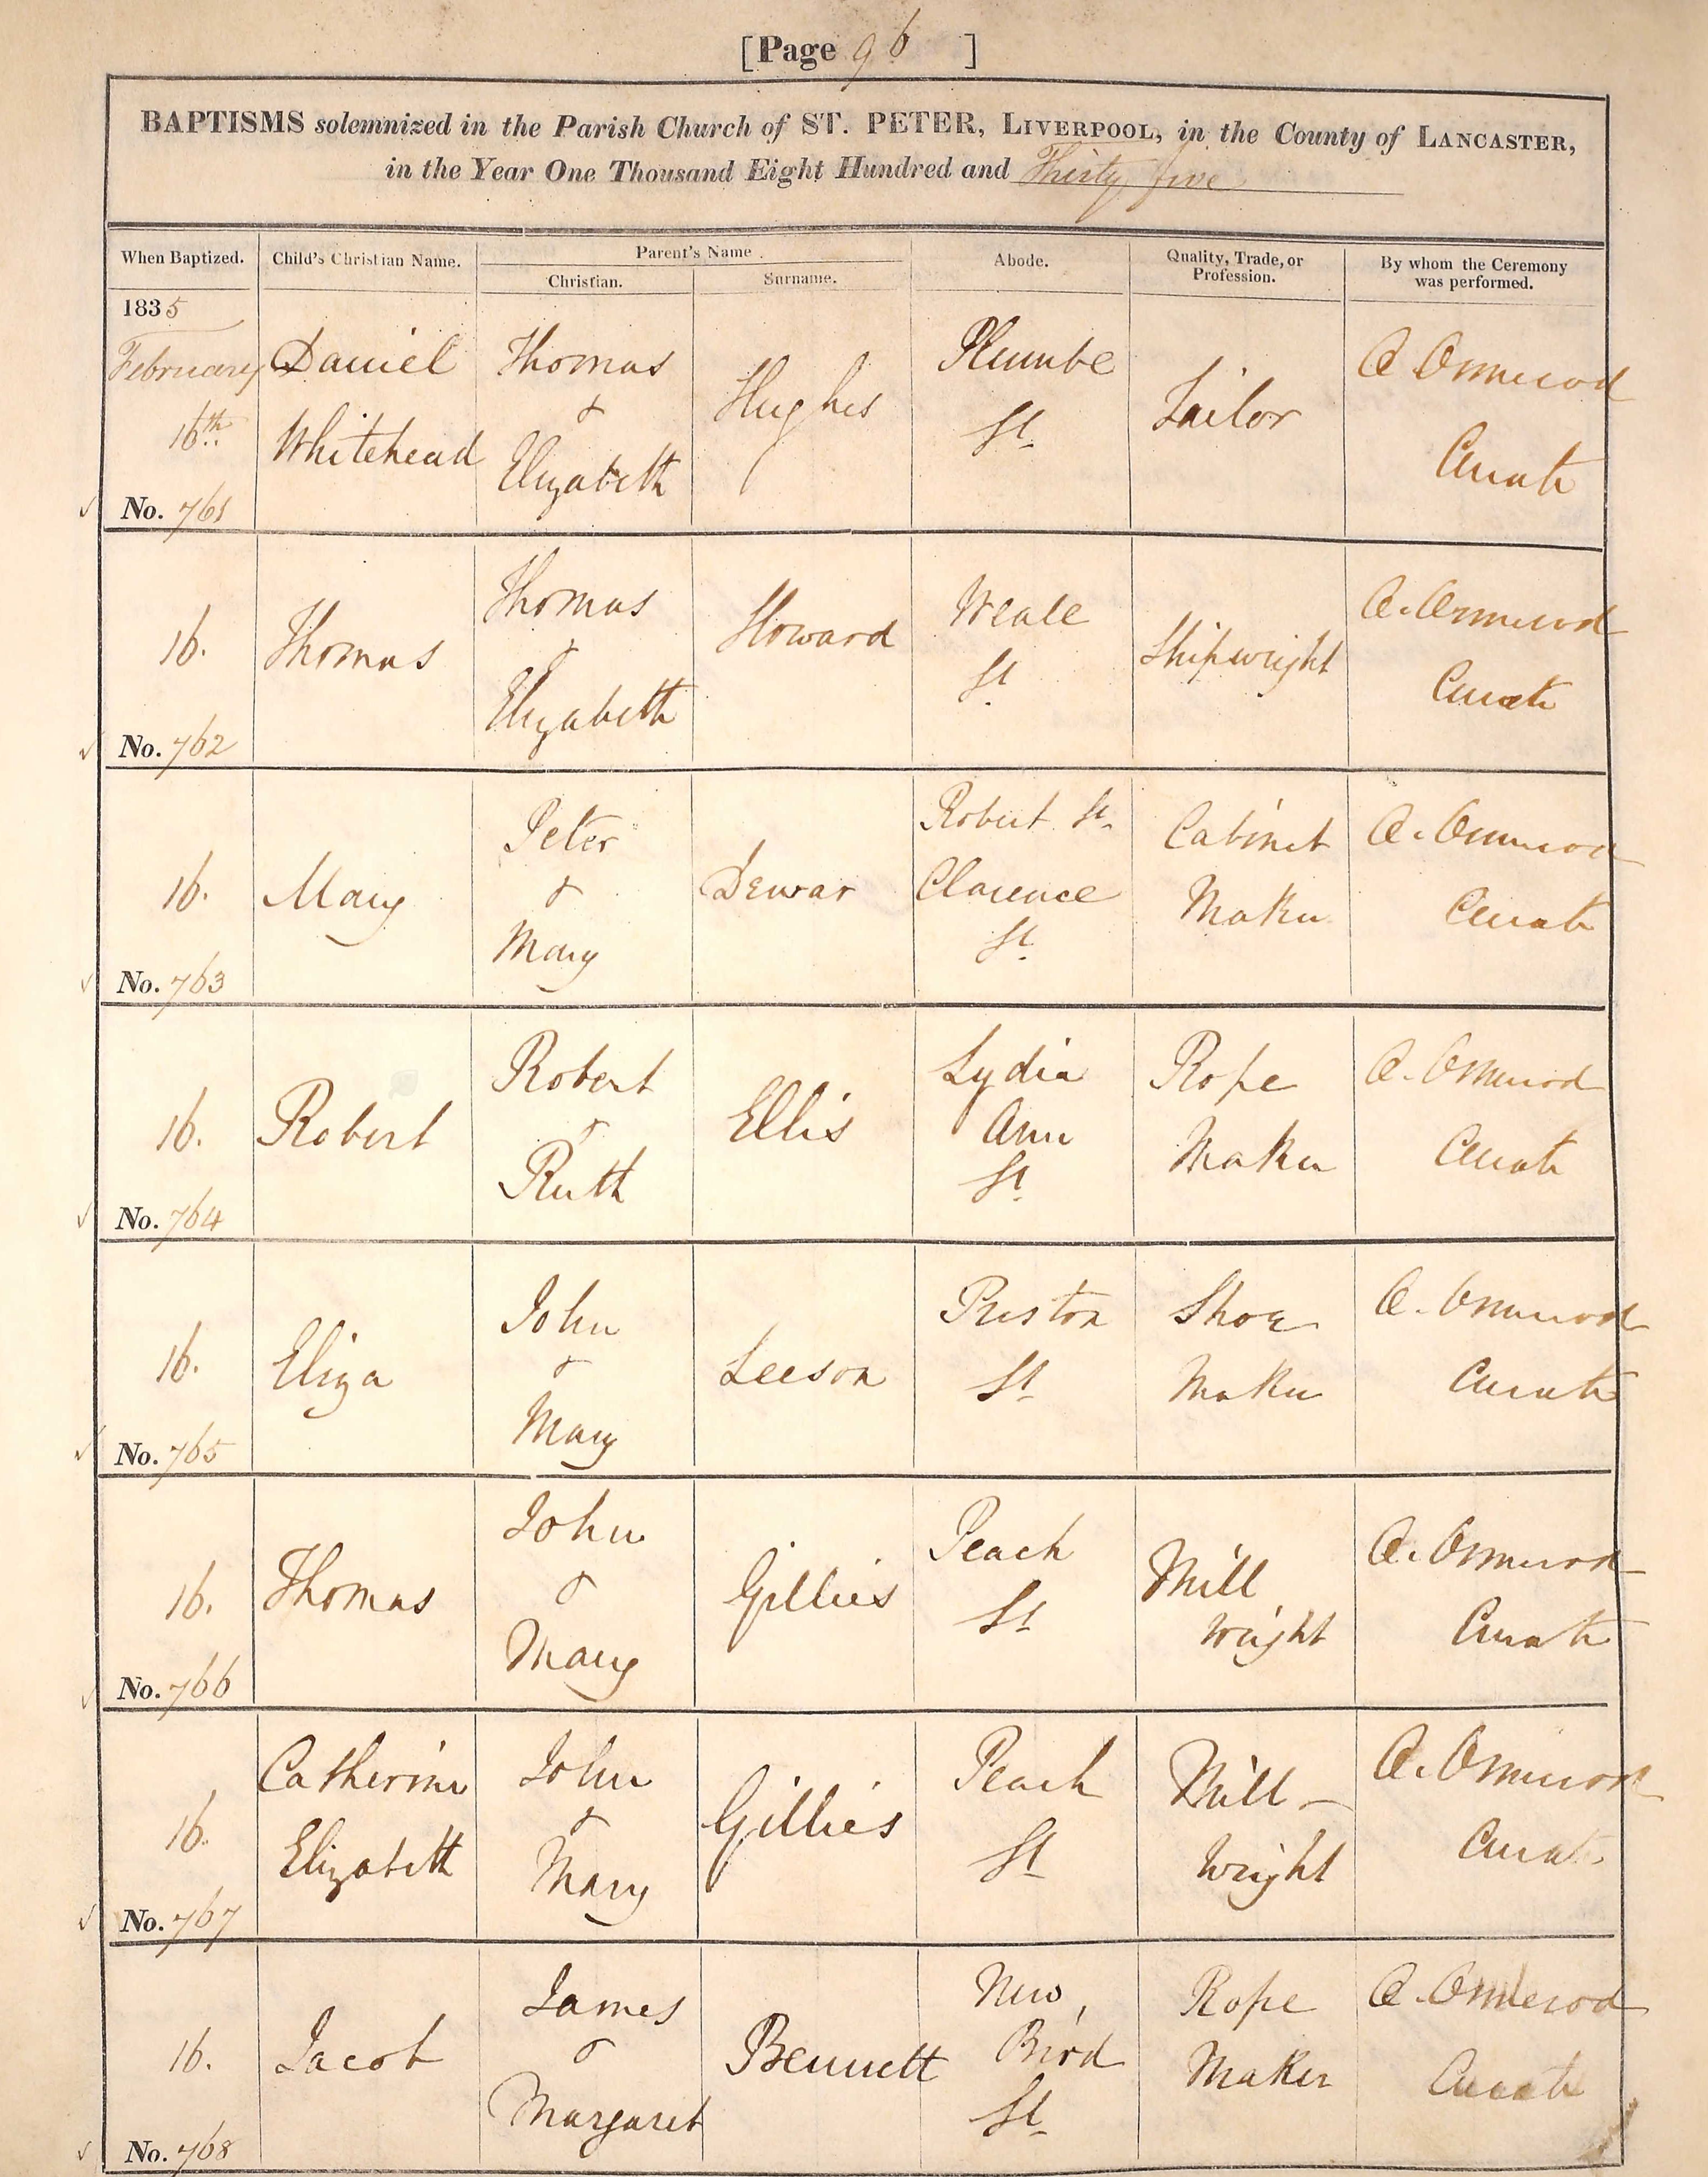 [Page 96 ]
BAPTISMS solemnized in the Parish Church of ST. PETER, LIVERPOOL, in the County of LANCASTER,
in the Year One Thousand Eight Hundred and Thirty five
When Baptized. Child's Christian Name. Parent's Name. Abode. Quality, Trade, or Profession. By whom the Ceremony was performed.
Christian. Surname.
1835
February 16th. No. 761 Daniel Whitehead Thomas & Elizabeth Hughes Plumbe St. Tailor A Ormerod Curate
16. No. 762 Thomas Thomas & Elizabeth Howard Neale St. Shipwright A. Ormerod Curate
16. No. 763 Mary Peter & Mary Dewar Robert St. Clarence St. Cabinet Maker A. Ormerod Curate
16. No. 764 Robert Robert & Ruth Ellis Lydia Ann St. Rope Maker A. Ormerod Curate
16. No. 765 Eliza John & Mary Leeson Preston St Shoe Maker A. Ormerod Curate
16. No. 766 Thomas John & Mary Gillies Peach St Mill Wright A. Ormerod Curate
16. No. 767 Catherine Elizabeth John & Mary Gillies Peach St Mill - Wright A. Ormerod Curate
16. No. 768 Jacob James & Margaret Bennett New Bird St. Rope Maker A. Ormerod Curate